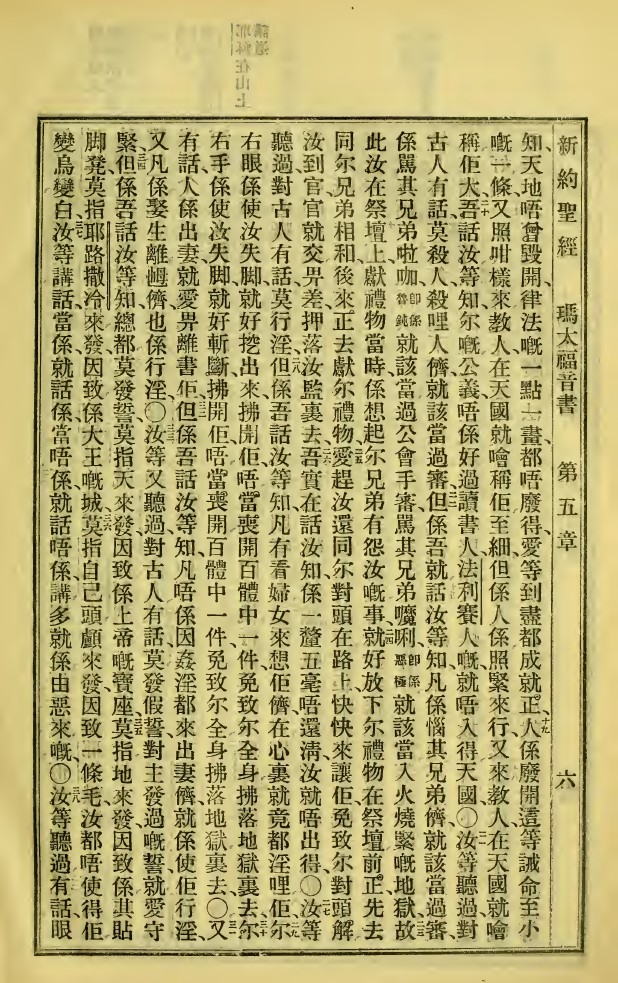 新約聖經 瑪太福音書 第五章 六
知、天地唔曾毀開、律法嘅一點一畫、都唔廢得、愛等到盡都成就正、十九人係廢開這等誡命至小
嘅一條、又照咁樣來教人、在天國就噲稱佢至細、但係人係照緊來行、又來教人、在天國就噲
稱佢大、二十吾話汝等知、尔嘅公義唔係好過讀書人法利賽人嘅、就唔入得天國、〇二一汝等聽過對
古人有話、莫殺人、殺哩人儕就該當過審、二二但係吾就話汝等知、凡係惱其兄弟儕、就該當過審、
係駡其兄弟啦咖、即係魯鈍就該當過公會手審、駡其兄弟嚈唎、即係惡極就該當入火燒緊嘅地獄、二三故
此汝在祭壇上獻禮物當時、係想起尔兄弟有怨汝嘅事、二四就好放下尔禮物在祭壇前、正先去
同尔兄弟相和、後來正去獻尔禮物、二五愛趕汝還同尔對頭在路上、快快來讓佢、免致尔對頭解
汝到官、官就交畀差、押落汝監裏去、二六吾實在話汝知、係一釐五毫唔還清、汝就唔出得、〇二七汝等
聽過對古人有話、莫行淫、二八但係吾話汝等知、凡有看婦女來想佢儕、在心裏就竟都淫哩佢、二九尔
右眼係使汝失脚、就好挖出來拂開佢、唔當喪開百體中一件、免致尔全身拂落地獄裏去、三十尔
右手係使汝失脚、就好斬斷拂開佢、唔當喪開百體中一件、免致尔全身拂落地獄裏去、〇三一又
有話、人係出妻、就愛畀離書佢、三二但係吾話汝等知、凡唔係因姦淫都來出妻儕、就係使佢行淫、
又凡係娶生離𡜵儕、也係行淫、〇三三汝等又聽過對古人有話、莫發假誓、對主發過嘅誓就愛守
緊、三四但係吾話汝等知、總都莫發誓、莫指天來發、因致係上帝嘅寶座、三五莫指地來發、因致係其貼
脚凳、莫指耶路撒冷來發、因致係大王嘅城、三六莫指自己頭顱來發、因致一條毛汝都唔使得佢
變烏變白、三七汝等講話、當係就話係、當唔係就話唔係、講多就係由惡來嘅、〇三八汝等聽過有話、眼